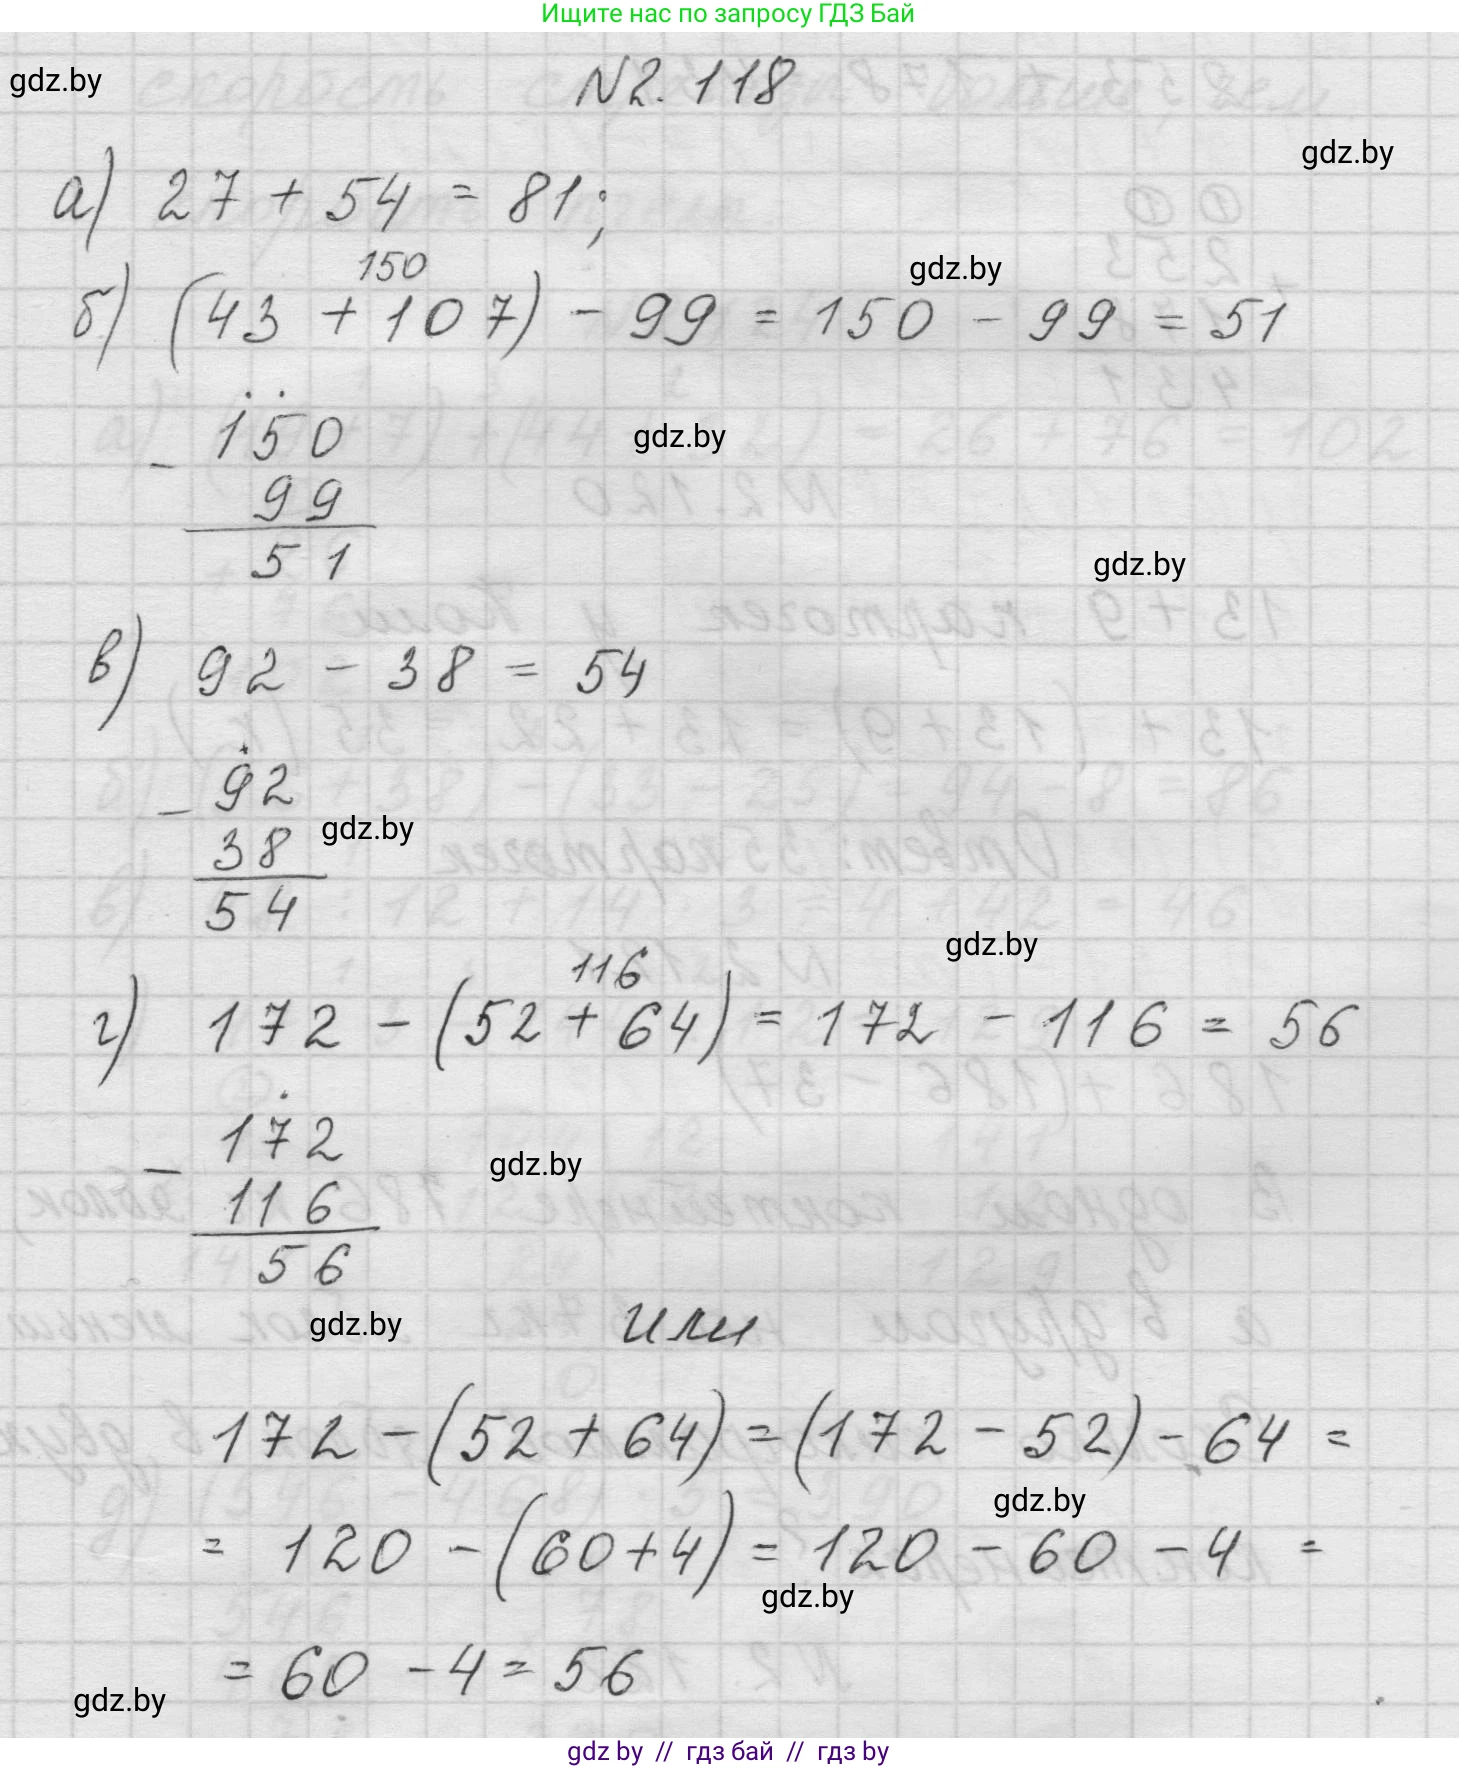 Ищите нас по запросу ГДЗ Бай
gdz.by
N2.118
gdz.by
а) 27 + 54 = 81;
150
gdz.by
б) (43 + 107) - 99 = 150 - 99 = 51
- 150
gdz.by
99
51
gdz.by
в) 92 - 38 = 54
- 92
38
gdz.by
54
gdz.by
116
г) 172 - (52 + 64) = 172 - 116 = 56
- 172
gdz.by
116
56
gdz.by
или
172 - (52 + 64) = (172 - 52) - 64 =
gdz.by
= 120 - (60 + 4) = 120 - 60 - 4 =
gdz.by
= 60 - 4 = 56
gdz.by
gdz by // гдз бай // гдз by